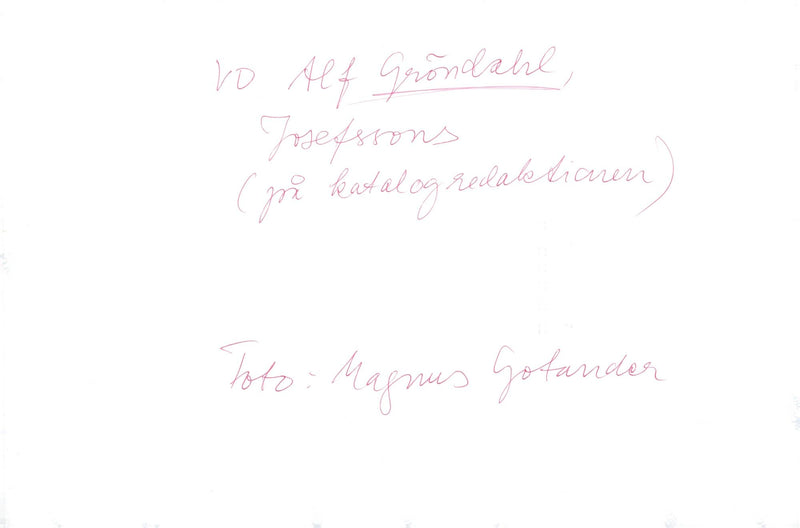 VD Alf Gröndahl,
Josefssons
(på katalogredaktionen)
Foto: Magnus Gotander